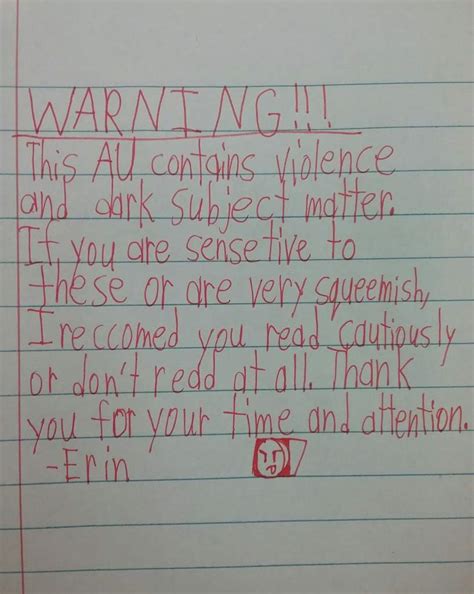 WARNING!!!
This AU contains violence
and dark subject matter.
If you are sensetive to
these or are very squeemish,
I reccomed you read cautiously
or don't read at all. Thank
you for your time and attention.
-Erin